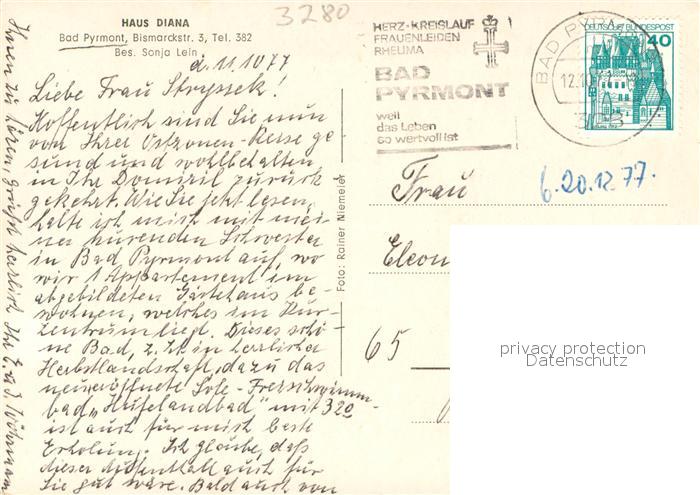 HAUS DIANA
Bad Pyrmont, Bismarckstr. 3, Tel. 382
Bes. Sonja Lein
3280
d. 11.10 77
Liebe Frau Stryssek!
Hoffentlich sind Sie nun
von Ihrer Ostzonen-Reise ge
sund und wohlbehalten
in Ihr Domizil zurück
gekehrt. Wie Sie jetzt lesen,
halte ich mich mit mei
ner kurenden Schwester
in Bad Pyrmont auf, wo
wir 1 Appartement im
abgebildeten Gästehaus be-
wohnen, welches im Kur-
zentrum liegt. Dieses schö
ne Bad, z. Zt. in herrlicher
Herbstlandschaft, dazu das
neueröffnete Sole-Freischwimm-
bad „Hufelandbad" mit 32°
ist auch für mich beste
Erholung. Ich glaube, daß
dieser Aufenthalt auch für
Sie gut wäre. Bald auch von
Ihnen zu hören, grüßt herzlich Ihr
Foto: Rainer Niemeier
HERZ-KREISLAUF
FRAUENLEIDEN
RHEUMA
BAD
PYRMONT
weil
das Leben
so wertvoll ist
BAD PYRMONT
12.10.
328
DEUTSCHE BUNDESPOST
40
Frau
b. 20.12.77.
Eleon
65
privacy protection
Datenschutz